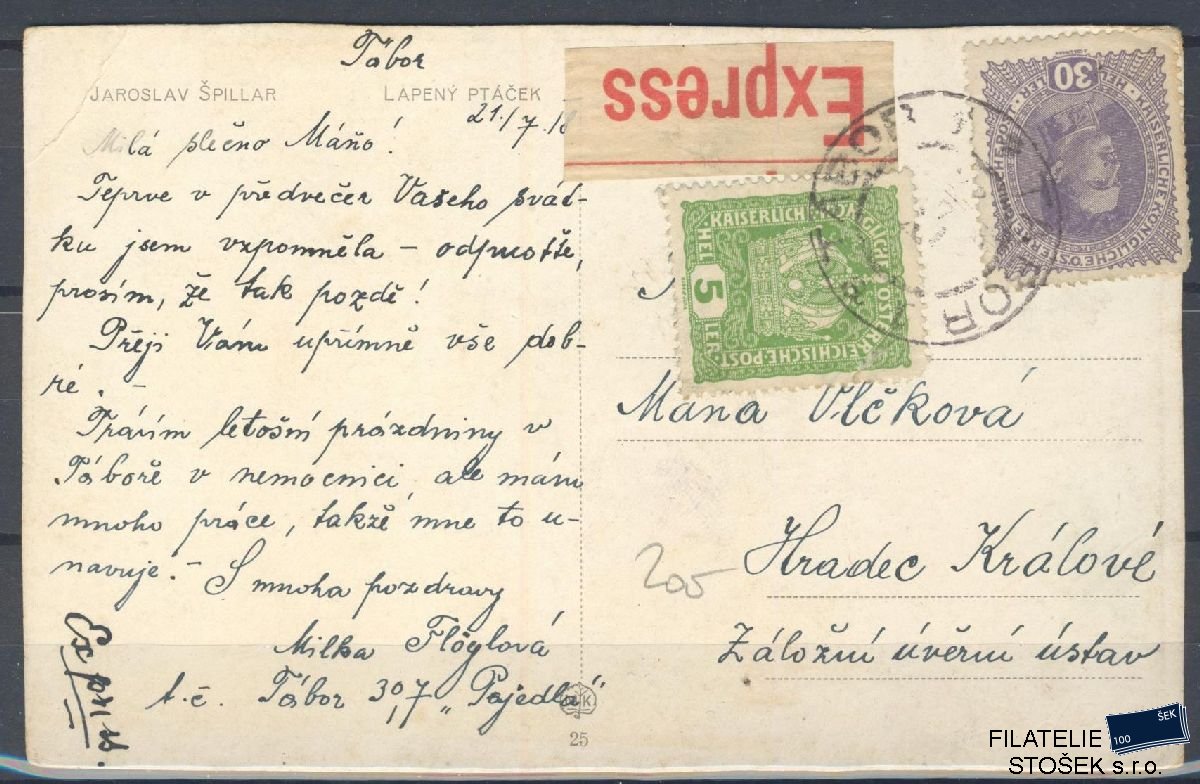 Tábor
JAROSLAV ŠPILLAR LAPENÝ PTÁČEK
21./7.18
Milá slečno Máňo!
Teprve v předvečer Vašeho svát-
ku jsem vzpomněla – odpusťte,
prosím, že tak pozdě!
Přeji Vám upřímně vše dob-
ré. –
Trávím letošní prázdniny v
Táboře v nemocnici, ale mám
mnoho práce, takže mne to u-
navuje. – S mnoha pozdravy
Milka Flöglová
t. č. Tábor 307 „Pajedla“
Express.
25
Express
30 HEL LER
KAISERLICHE KÖNIGLICHE ÖSTERREICHISCHE POST
KAISERLICHE KÖNIGLICHE ÖSTERREICHISCHE POST
5 HELLER
TÁBOR TABOR
Mana Vlčková
205
Hradec Králové
Záložní úvěrní ústav
FILATELIE
STOŠEK s.r.o.
100 ŠEK